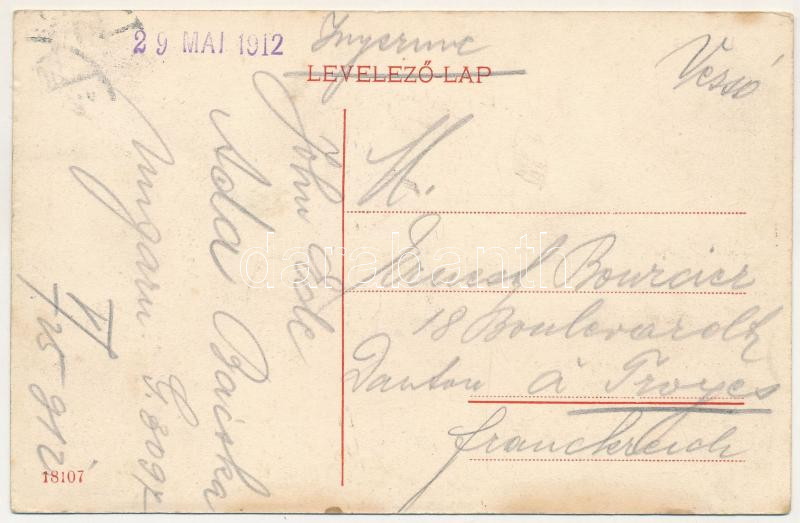 29 MAI 1912
LEVELEZŐ-LAP
M.
Ernest Bourcier
18 Boulevardt
Danton à Troyes
franckreich
John
Ada Bácska
Ungarn.
V/25 912
18107
darabanth